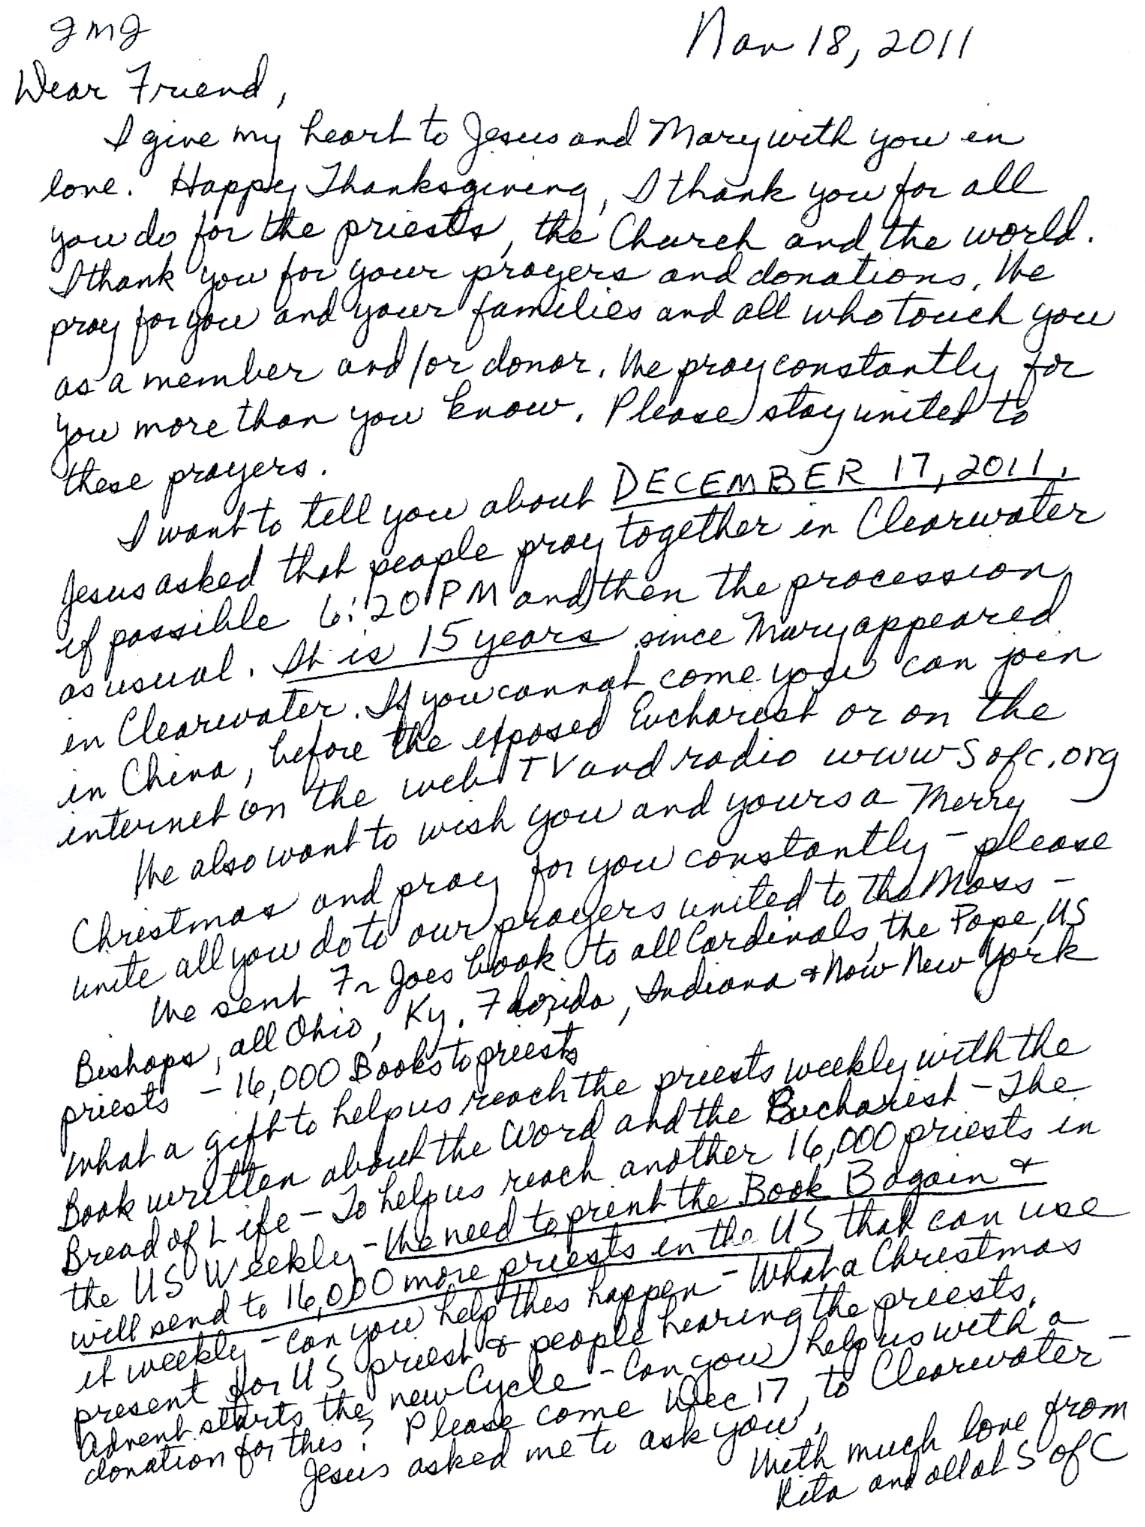 JMJ
Nov 18, 2011
Dear Friend,
I give my heart to Jesus and Mary with you in
love. Happy Thanksgiving, I thank you for all
you do for the priests, the Church and the world.
I thank you for your prayers and donations. We
pray for you and your families and all who touch you
as a member and/or donor. We pray constantly for
you more than you know. Please stay united to
these prayers.
I want to tell you about DECEMBER 17, 2011.
Jesus asked that people pray together in Clearwater
if possible 6:20 PM and then the procession
as usual. It is 15 years since Mary appeared
in Clearwater. If you cannot come you can join
in China, before the exposed Eucharist or on the
internet on the web TV and radio www Sofc.org
We also want to wish you and yours a Merry
Christmas and pray for you constantly - please
unite all you do to our prayers united to the Mass -
We sent Fr Joes book to all Cardinals, the Pope, US
Bishops, all Ohio, Ky. Florida, Indiana & Now New York
priests - 16,000 Books to priests
What a gift to help us reach the priests weekly with the
Book written about the Word and the Eucharist - The
Bread of Life - To help us reach another 16,000 priests in
the US Weekly - We need to print the Book B again &
will send to 16,000 more priests in the US that can use
it weekly - Can you help this happen - What a Christmas
present for US priest & people hearing the priests.
Advent starts the new Cycle - Can you help us with a
donation for this? Please come Dec 17, to Clearwater -
Jesus asked me to ask you,
With much love from
Rita and all at S of C